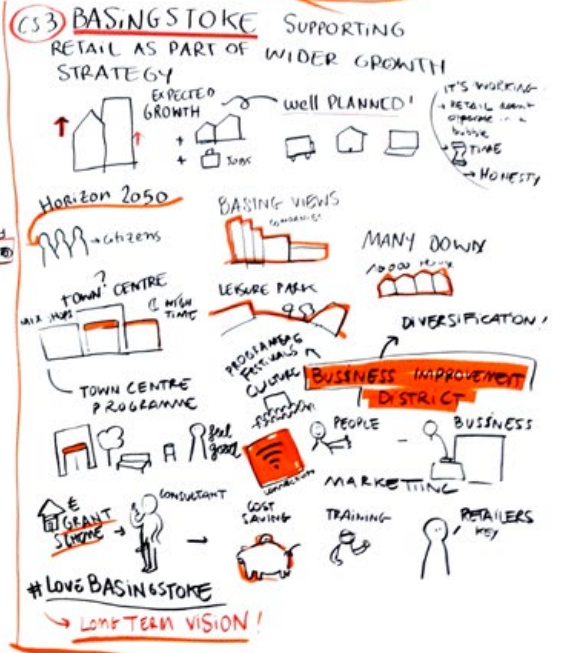 CS3 BASINGSTOKE SUPPORTING
RETAIL AS PART OF WIDER GROWTH
STRATEGY
EXPECTED
GROWTH
well PLANNED!
+
+ JOBS
IT'S WORKING
→ RETAIL
operate in a
bubble
→ TIME
→ HONESTY
Horizon 2050
→ citizens
BASING VIEWS
COMPANIES
MANY DOWN
10 000
TOWN? CENTRE
MIX SHOPS
HIGH
TIME
LEISURE PARK
DIVERSIFICATION!
PROGRAMERS
FESTIVALS
CULTURE
BUSINESS IMPROVEMENT
DISTRICT
TOWN CENTRE
PROGRAMME
feel
good
PEOPLE
BUSINESS
MARKETTING
£
GRANT
SCHEME
CONSULTANT
COST
SAVING
TRAINING
RETAILERS
KEY
#LOVEBASINGSTOKE
LONG TERM VISION!